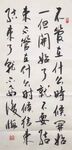 不管在什么时候开始
一但开始了就不要结
束不管在什么时候结
束了就不要